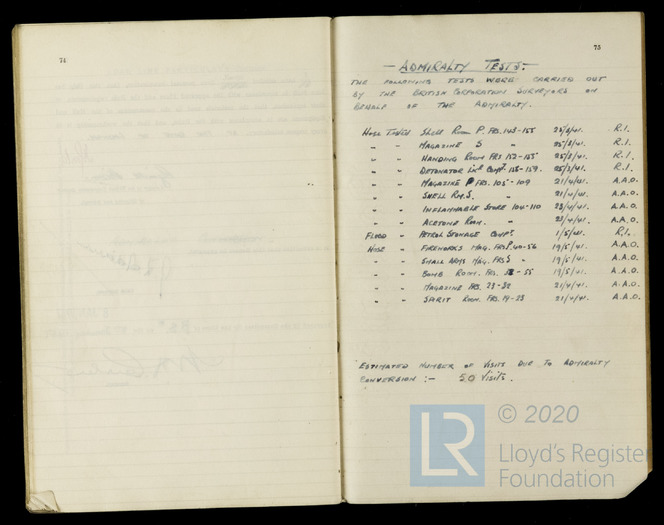 74
73
- ADMIRALTY TESTS: -
THE FOLLOWING TESTS WERE CARRIED OUT
BY THE BRITISH CORPORATION SURVEYORS ON
BEHALF OF THE ADMIRALTY.
HOSE TESTED SHELL ROOM P. FRS. 143-155 25/3/41. R.I.
" " MAGAZINE S " 25/3/41. R.I.
" " HANDING ROOM FRS 152-155 25/3/41. R.I.
" " DETONATOR COMPT. 158-159. 25/3/41. R.I.
" " MAGAZINE P FRS. 105-109 21/4/41. A.A.O.
" " SHELL RM. S. " 21/4/41. A.A.O.
" " INFLAMMABLE STORE 104-110 23/4/41. A.A.O.
" " ACETONE ROOM. " 23/4/41. A.A.O.
FLOOD " PETROL STORAGE COMPT. 1/5/41. R.I.
HOSE " FIREWORKS MAG. FRS P. 40-56 19/5/41. A.A.O.
" " SMALL ARMS MAG. FRS S " 19/5/41. A.A.O.
" " BOMB ROOM. FRS. 52-55 19/5/41. A.A.O.
" " MAGAZINE FRS. 23-32 21/4/41. A.A.O.
" " SPIRIT ROOM. FRS. 19-23 21/4/41. A.A.O.
ESTIMATED NUMBER OF VISITS DUE TO ADMIRALTY
CONVERSION :- 50 VISITS.
LR
© 2020
Lloyd's Register
Foundation